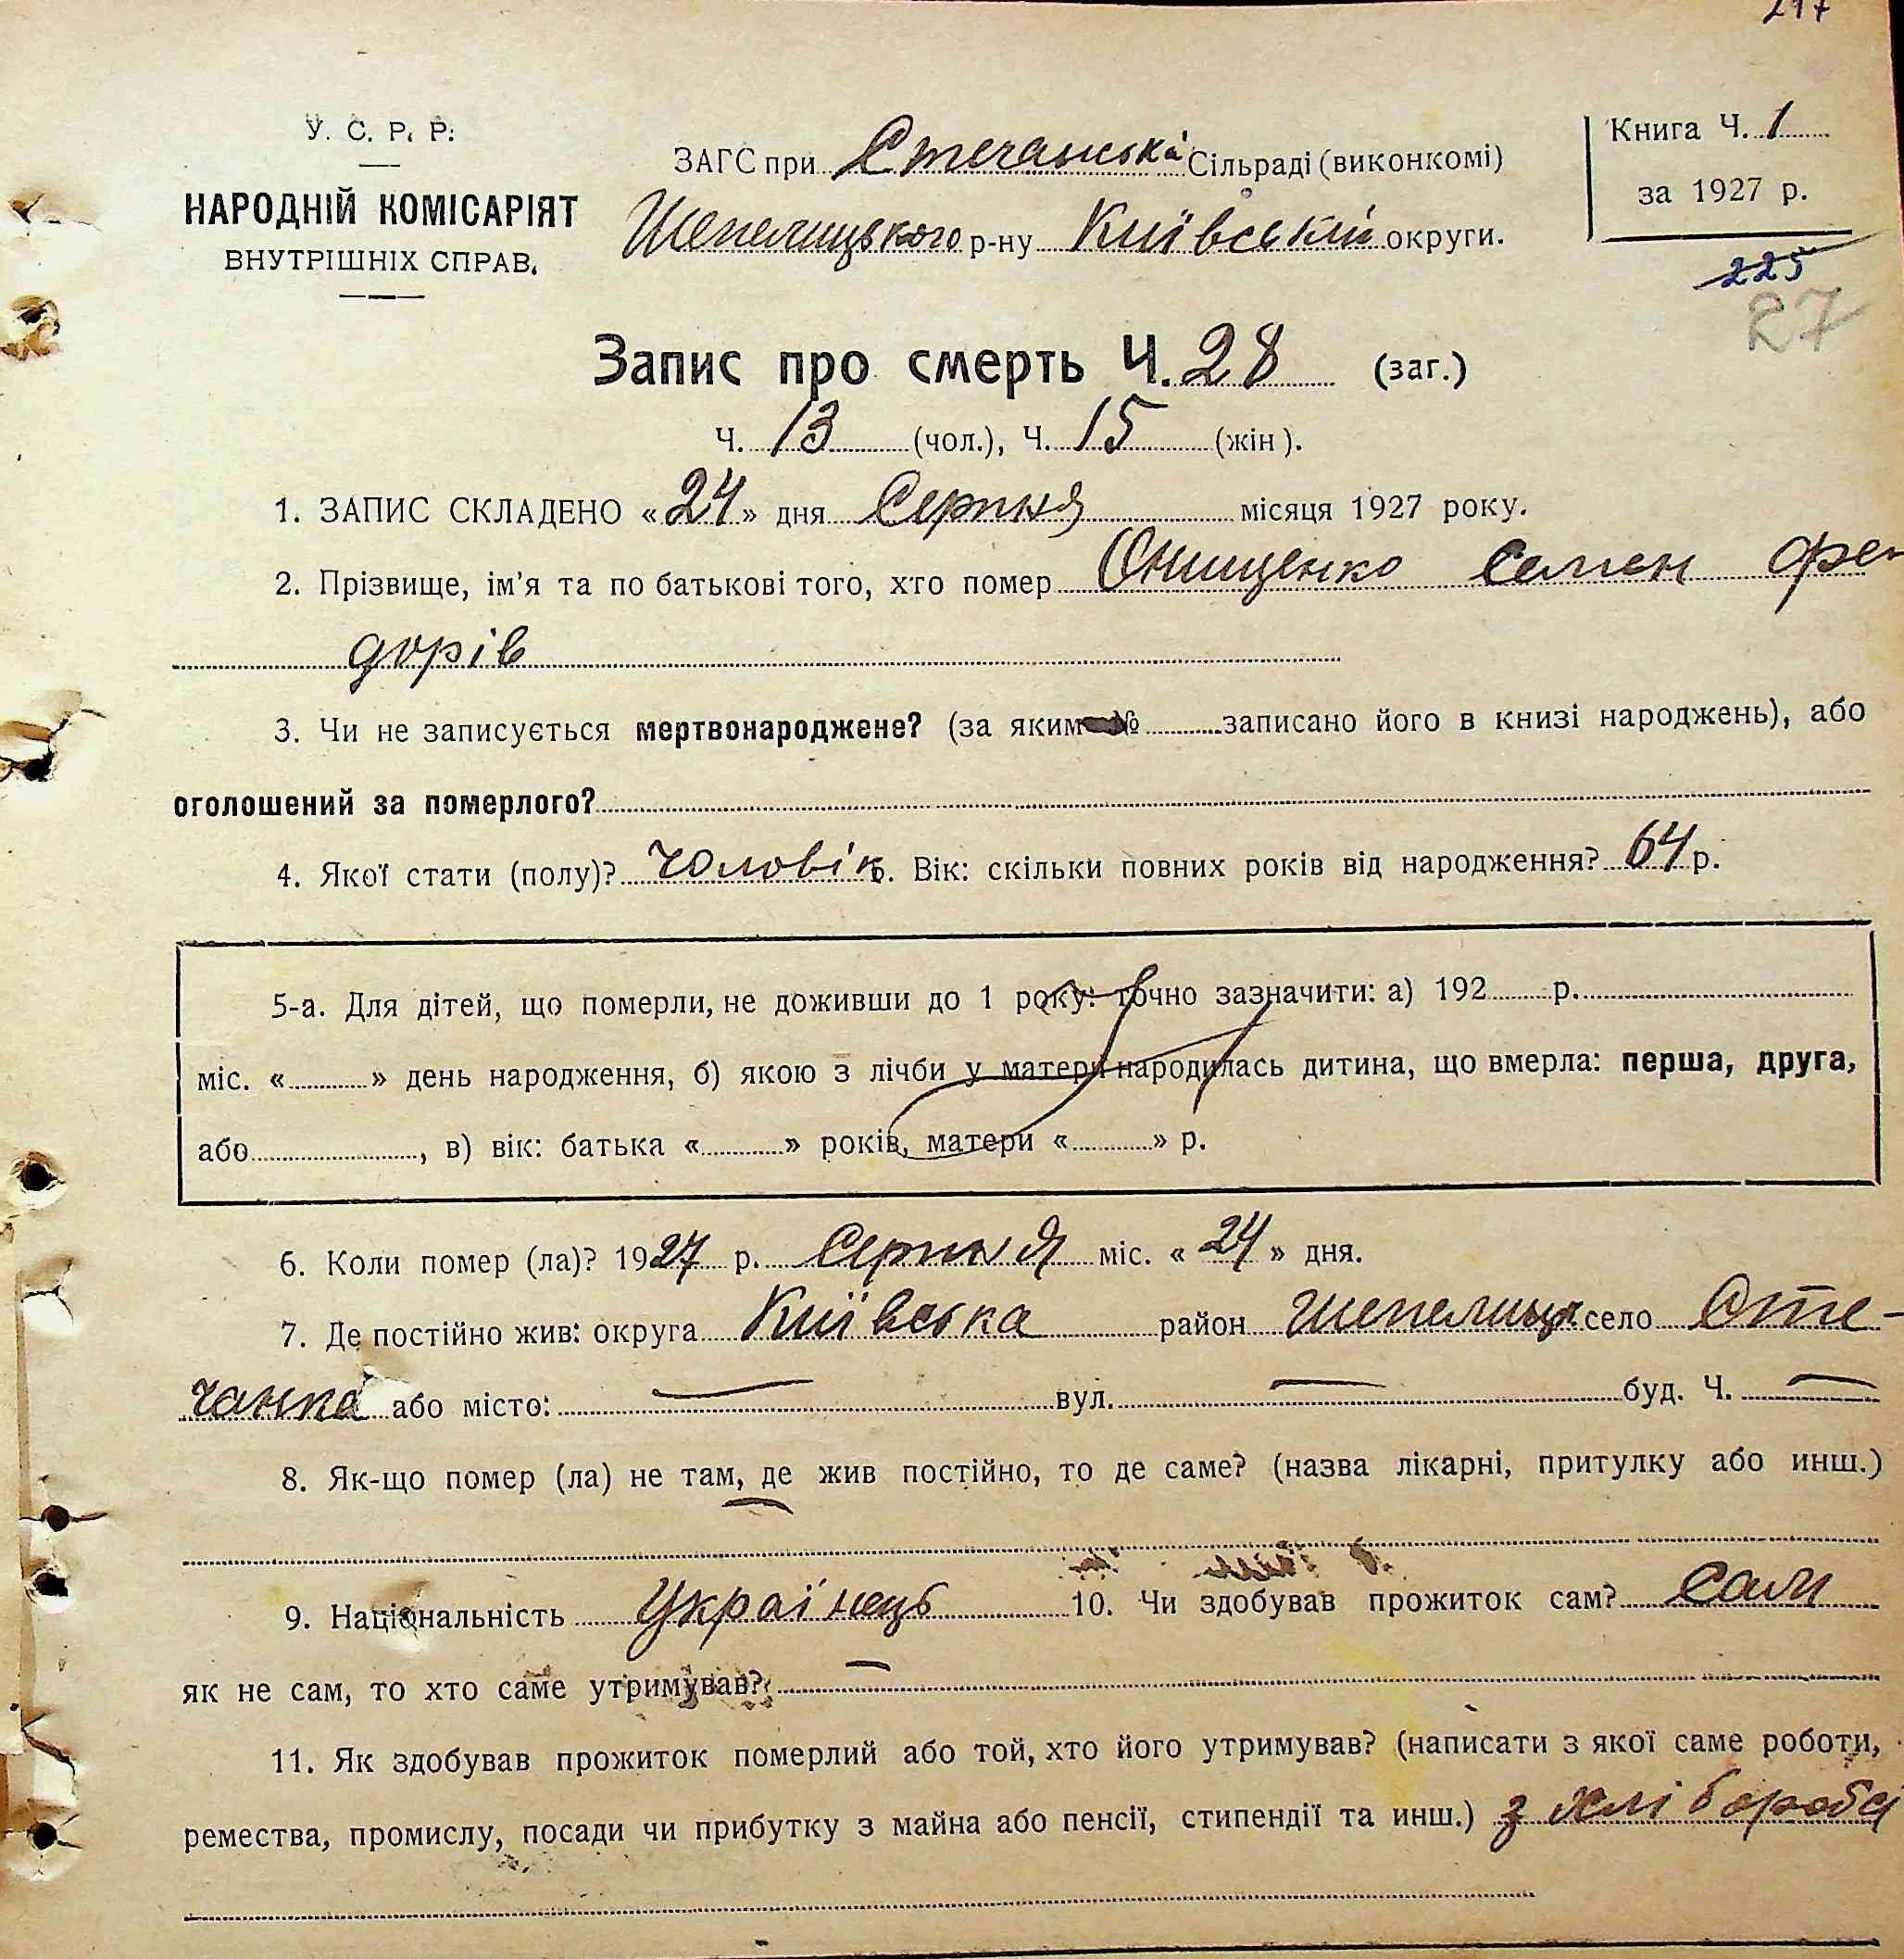 217
У. С. Р. Р.
НАРОДНІЙ КОМІСАРІЯТ
ВНУТРІШНІХ СПРАВ.
ЗАГС при Стечанській Сільраді (виконкомі)
Шепелицького р-ну Київській округи.
Книга Ч. 1
за 1927 р.
225
27
Запис про смерть Ч. 28 (заг.)
Ч. 13 (чол.), Ч. 15 (жін).
1. ЗАПИС СКЛАДЕНО «24» дня Серпня місяця 1927 року.
2. Прізвище, ім'я та по батькові того, хто помер Онищенко Семен Фе-
дорів
3. Чи не записується мертвонароджене? (за яким № записано його в книзі народжень), або
оголошений за померлого?
4. Якої стати (полу)? Чоловік. 5. Вік: скільки повних років від народження? 64 р.
5-а. Для дітей, що померли, не доживши до 1 року: точно зазначити: а) 192 р.
міс. « » день народження, б) якою з лічби у матери народилась дитина, що вмерла: перша, друга,
або , в) вік: батька « » років, матери « » р.
6. Коли помер (ла)? 1927 р. Серпня міс. «24» дня.
7. Де постійно жив: округа Київська район Шепелицьк село Сте-
чанка або місто: — вул. — буд. Ч. —
8. Як-що помер (ла) не там, де жив постійно, то де саме? (назва лікарні, притулку або инш.)
—
9. Національність Українець 10. Чи здобував прожиток сам? Сам
як не сам, то хто саме утримував? —
11. Як здобував прожиток померлий або той, хто його утримував? (написати з якої саме роботи,
ремества, промислу, посади чи прибутку з майна або пенсії, стипендії та инш.) з хлібороба